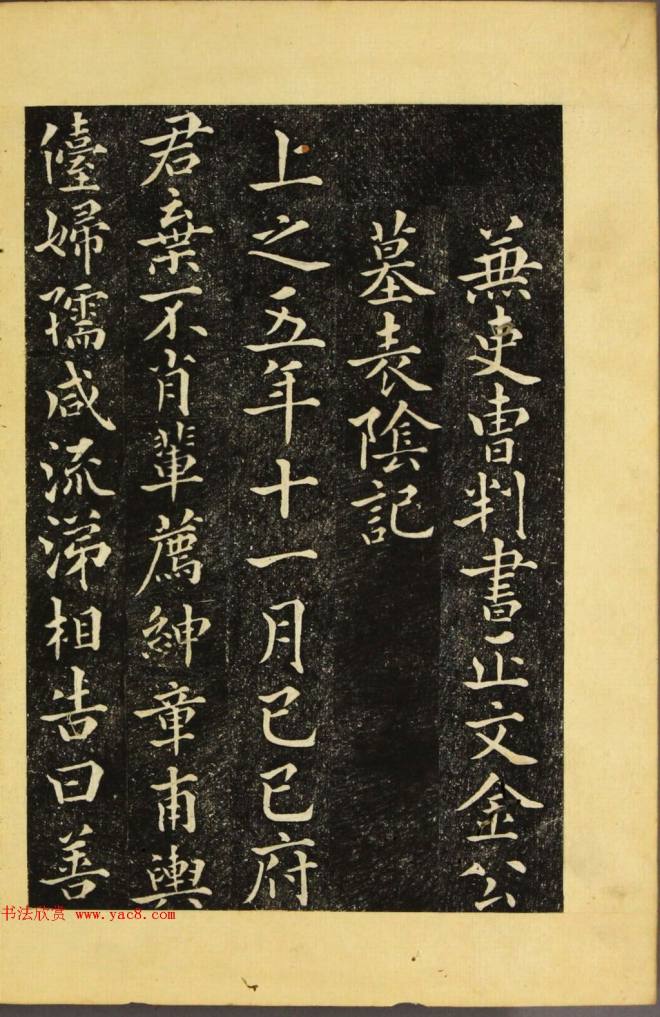 蕪吏曹判書正文金公
墓表陰記
上之五年十一月己巳府
君棄不肖輩薦紳章甫輿
儓婦孺咸流涕相告曰善
书法欣赏 www.yac8.com